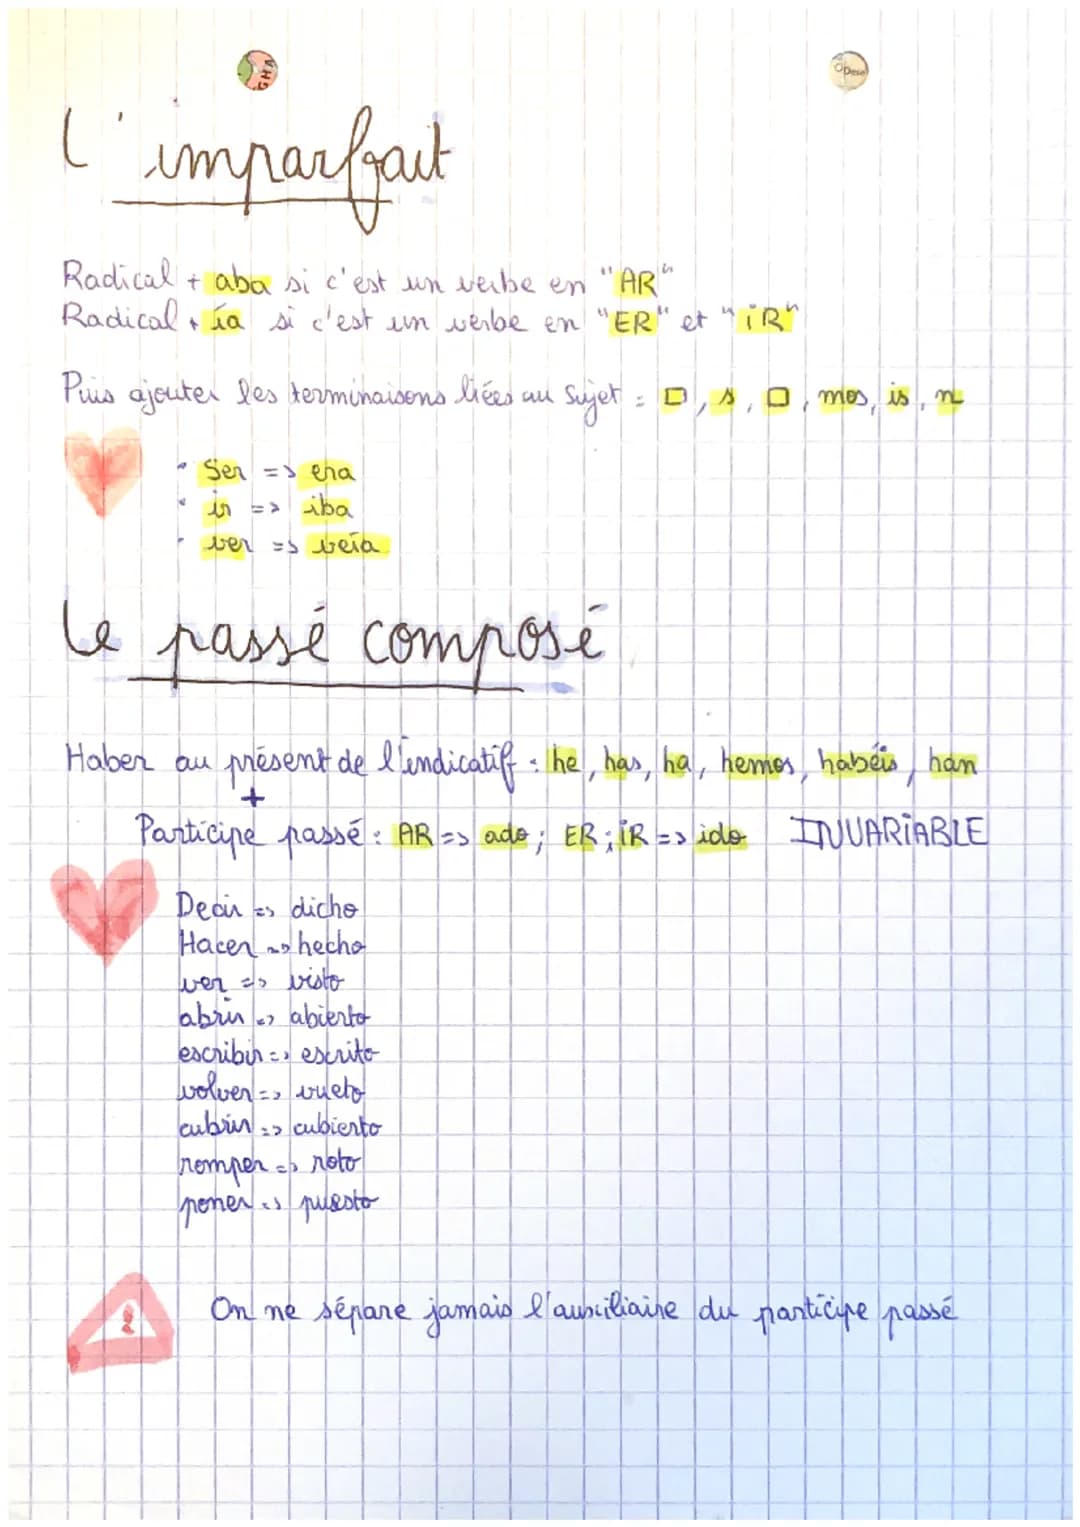 GHA
Dese
L'imparfait
Radical + aba si c'est un verbe en "AR"
Radical + ía si c'est un verbe en "ER" et "iR"
Puis ajouter les terminaisons liées au Sujet : □, s, □, mos, is, n
• Ser => era
• ir => iba
• ver => veía
Le passé composé
Haber au présent de l'indicatif : he, has, ha, hemos, habéis, han
+
Participe passé : AR => ado ; ER ; iR => ido INVARiABLE
Decir => dicho
Hacer => hecho
ver => visto
abrir => abierto
escribir => escrito
volver => vueto
cubrir => cubierto
romper => roto
poner => puesto
On ne sépare jamais l'auxiliaire du participe passé